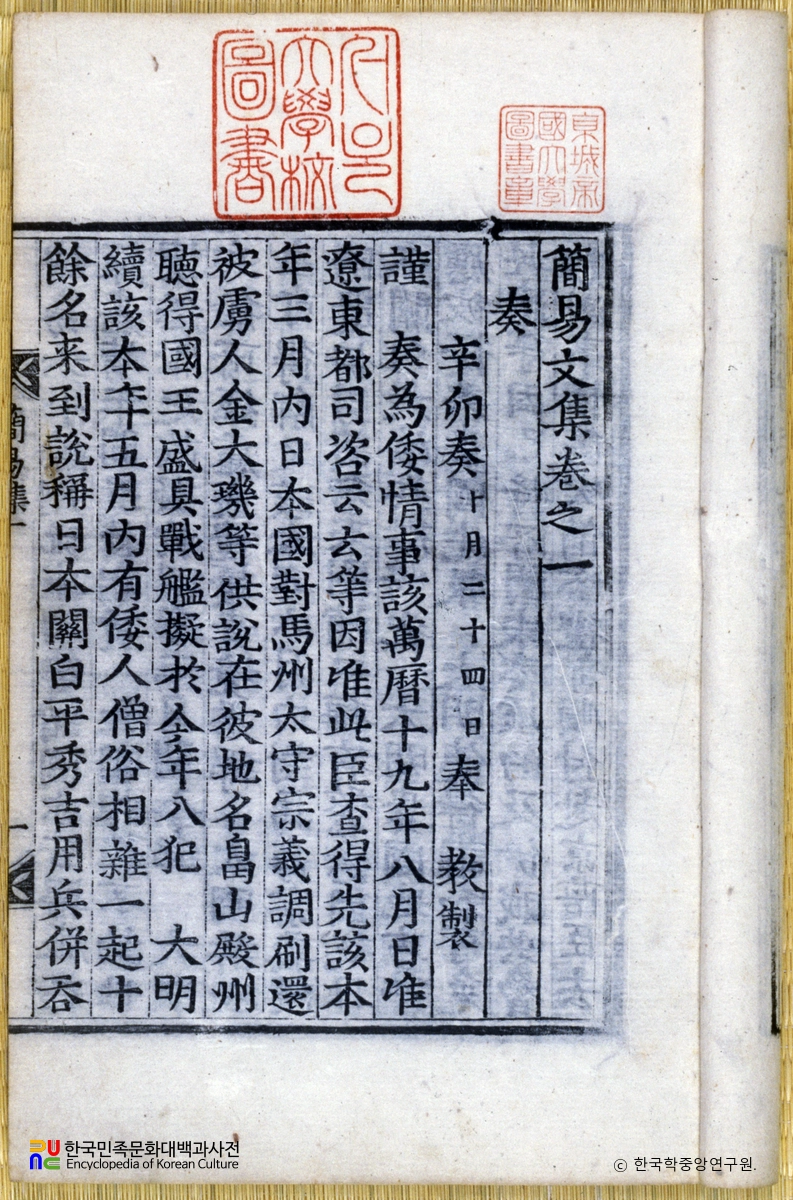 簡易文集卷之一
奏
辛卯奏十月二十四日奉 教製
謹 奏為倭情事該萬曆十九年八月日准
遼東都司咨云云等因准此臣查得先該本
年三月內日本國對馬州太守宗義調刷還
被虜人金大璣等供說在彼地名畠山殿州
聽得國王盛具戰艦擬於今年入犯 大明
續該本年五月內有倭人僧俗相雜一起十
餘名来到說稱日本關白平秀吉用兵併吞
簡易集一
一
大學校
圖書
京城帝
國大學
圖書章
한국민족문화대백과사전
Encyclopedia of Korean Culture
© 한국학중앙연구원.